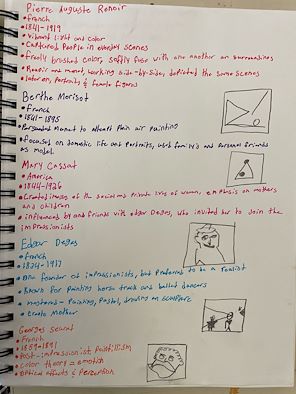 Pierre Auguste Renoir
• French
• 1841-1919
• Vibrant light and color
• Captured People in everyday scenes
• freely brushed color, softly fuse with one another or surroundings
• Renoir and monet working side-by-side, depicted the same scenes
• later on, Portraits & female figures
Berthe Morisot
• French
• 1841-1895
• Persuaded Monet to attempt Plein air Painting
• focused on domestic life and Portraits, used family and Personal friends
as model.
Mary Cassat
• America
• 1844-1926
• Created images of the social and Private lives of women, emphasis on mothers
and children
• influenced by and friends with edgar Degas, who invited her to join the
impressionists
Edgar Degas
• french
• 1834-1917
• founder of impressionists, but preferred to be a realist
• known for Painting horse track and ballet dancers
• mastered - Painting, Pastel, drawing
Georges seurat
• French
• 1859-1891
• Post-impressionist, Pointillism
• color theory = emotion
• Optical effects & Perception